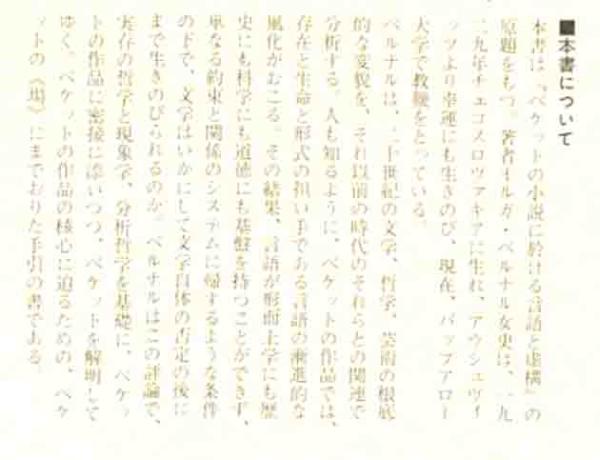 ■本書について
本書は、『ベケットの小説に於ける言語と虚構』の
原題をもつ。著者オルガ・ベルナル女史は、一九
二九年チェコスロヴァキアに生れ、アウシュヴィ
ッツより幸運にも生きのび、現在、バッファロー
大学で教鞭をとっている。
ベルナルは、二十世紀の文学、哲学、芸術の根底
的な変貌を、それ以前の時代のそれらとの関連で
分析する。人も知るように、ベケットの作品では、
存在と生命と形式の担い手である言語の漸進的な
風化がおこる。その結果、言語が形而上学にも歴
史にも科学にも道徳にも基盤を持つことができず、
単なる約束と関係のシステムに帰するような条件
の下で、文学はいかにして文学自体の否定の後に
まで生きのびられるのか。ベルナルはこの評論で、
実存の哲学と現象学、分析哲学を基礎に、ベケッ
トの作品に密接に添いつつ、ベケットを解明して
ゆく。ベケットの作品の核心に迫るための、ベケ
ットの《場》にまでおりた手引の書である。